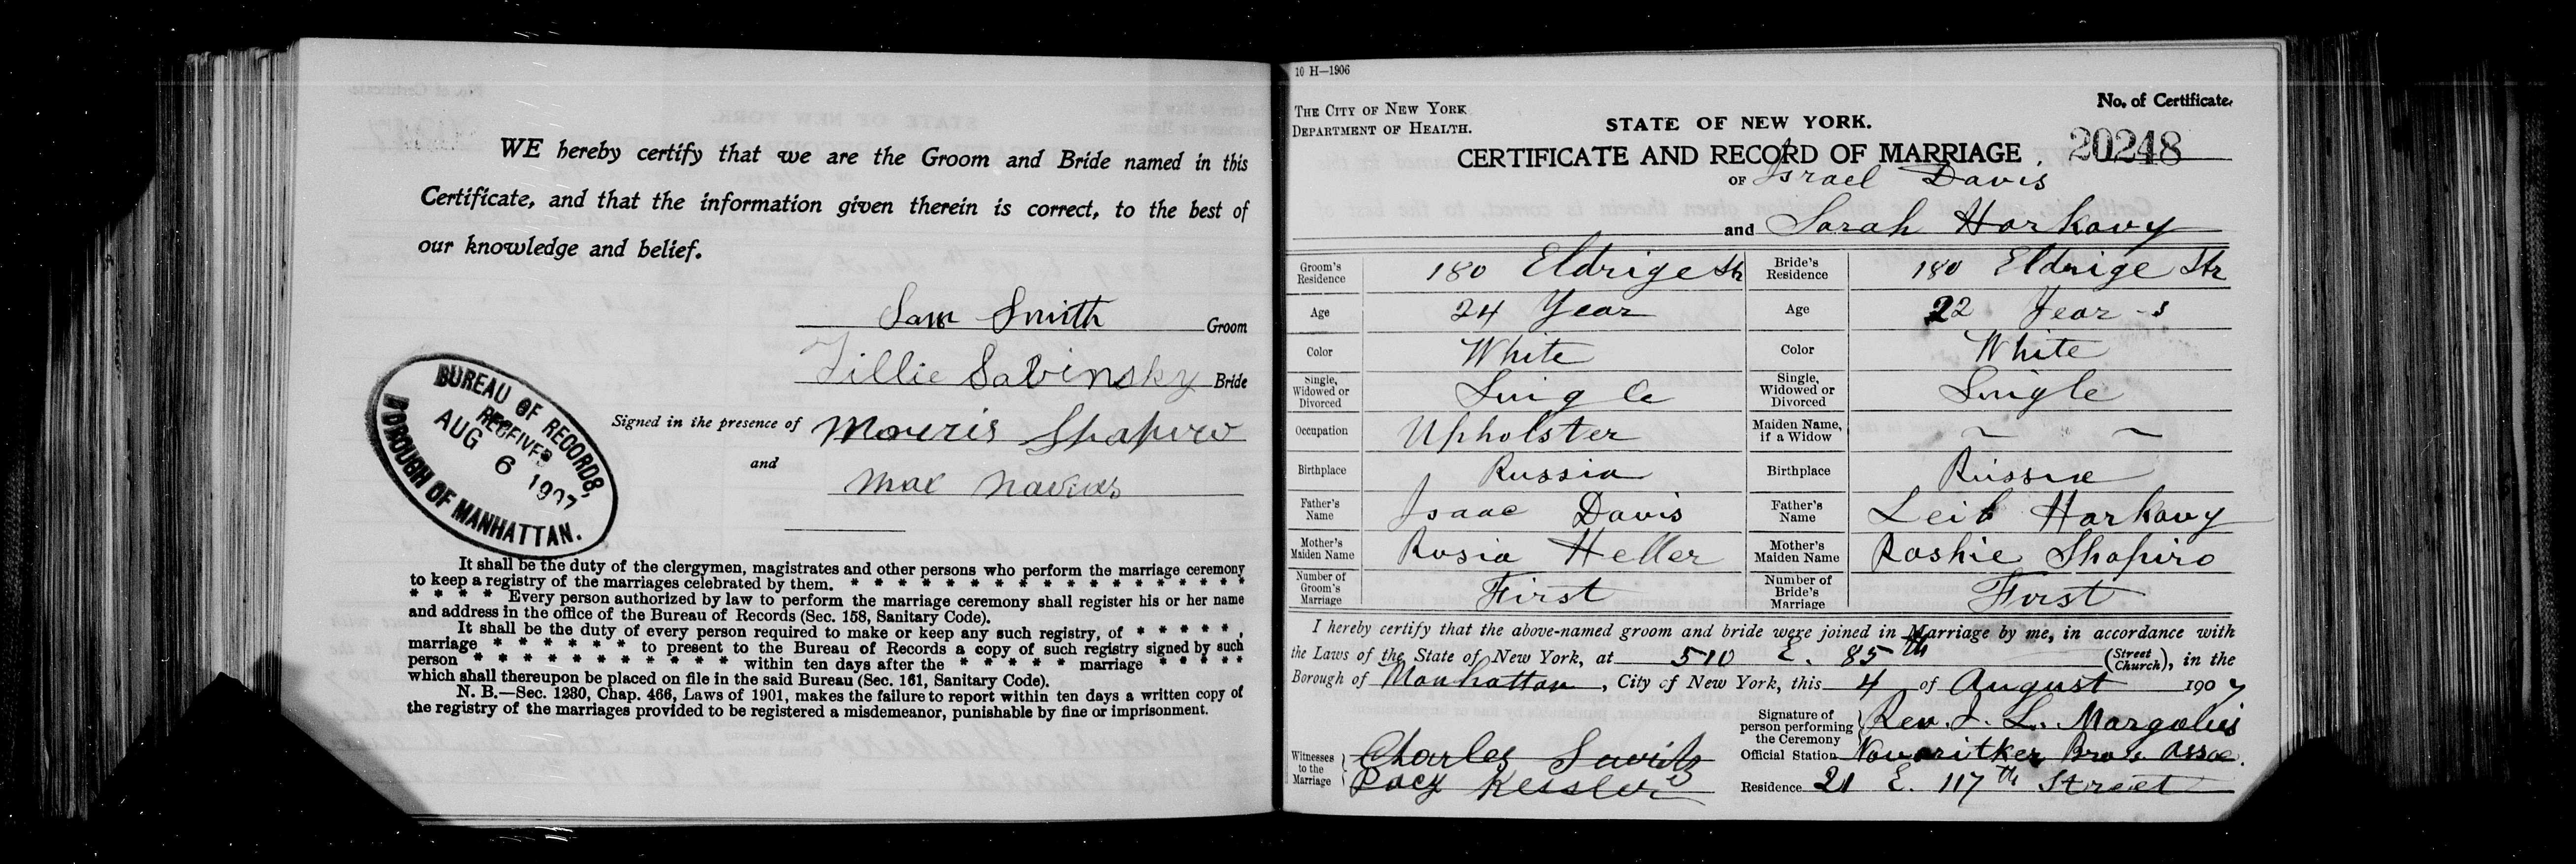 WE hereby certify that we are the Groom and Bride named in this
Certificate, and that the information given therein is correct, to the best of
our knowledge and belief.
Sam Smith Groom
Tillie Savinsky Bride
Signed in the presence of Morris Shapiro
and
Max
BUREAU OF RECORDS,
RECEIVED
AUG 6 1907
BOROUGH OF MANHATTAN.
It shall be the duty of the clergymen, magistrates and other persons who perform the marriage ceremony
to keep a registry of the marriages celebrated by them. * * * * * * * * * * * * * * * * *
* * * * Every person authorized by law to perform the marriage ceremony shall register his or her name
and address in the office of the Bureau of Records (Sec. 158, Sanitary Code).
It shall be the duty of every person required to make or keep any such registry, of * * * * * ,
marriage * * * * * * * to present to the Bureau of Records a copy of such registry signed by such
person * * * * * * * * * * * within ten days after the * * * * * marriage * * * * *
which shall thereupon be placed on file in the said Bureau (Sec. 161, Sanitary Code).
N. B.—Sec. 1230, Chap. 466, Laws of 1901, makes the failure to report within ten days a written copy of
the registry of the marriages provided to be registered a misdemeanor, punishable by fine or imprisonment.
10 H—1906
THE CITY OF NEW YORK
DEPARTMENT OF HEALTH.
No. of Certificate.
STATE OF NEW YORK.
CERTIFICATE AND RECORD OF MARRIAGE 20248
OF Israel Davis
and Sarah Harkavy
Groom's Residence 180 Eldrige Str Bride's Residence 180 Eldrige Str
Age 24 Year Age 22 Year-s
Color White Color White
Single, Widowed or Divorced Single Single, Widowed or Divorced Single
Occupation Upholster Maiden Name, if a Widow ~ ~
Birthplace Russia Birthplace Russia
Father's Name Isaac Davis Father's Name Leib Harkavy
Mother's Maiden Name Rosia Heller Mother's Maiden Name Rashie Shapiro
Number of Groom's Marriage First Number of Bride's Marriage First
I hereby certify that the above-named groom and bride were joined in Marriage by me, in accordance with
the Laws of the State of New York, at 510 E. 85th (Street Church), in the
Borough of Manhattan, City of New York, this 4 of August 1907
Signature of person performing the Ceremony Rev. I. L. Margolies
Official Station Assoc.
Witnesses to the Marriage Charles Savitz
Kessler
Residence 21 E. 117th Street